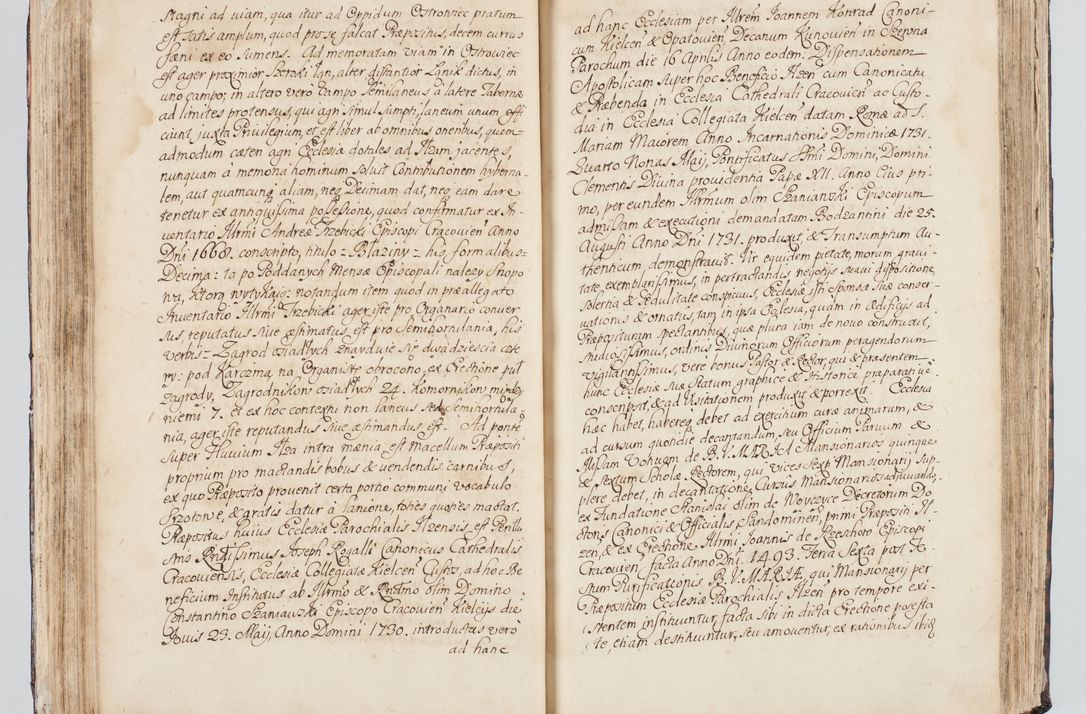 Stagni ad viam, qua itur ad Oppidum Ostrowiec pratum
est satis amplum, quod pro se falcat Præpositus, decem currus
fæni ex eo sumens. Ad memoratam viam in Ostrowiec
est ager proximior Szeroki Ign, alter distantior Lýnik dictus, in
uno campo; in altero verò campo Semilaneus à latere Tabernæ
ad limites protensus, qui agri simul sumpti, laneum unum effi
ciunt, juxta Privilegium, et est liber ab omnibus oneribus, quem=
admodum cæteri agri Ecclesiæ dotales ad Ilzam jacentes,
nunquam à memoria hominum soluit Contributionem hyberna=
lem, aut quamcunq aliam, neq Decimam dat, neq eam dare
tenetur ex antiquissima possesione, quod confirmatur ex In=
ventario Illrmi Andreæ Trzebicki Episcopi Cracovien Anno
Dni 1668. conscripto, titulo = Błaziny = his formalibus=
Decima: ta po Poddanych Mensæ Episcopali nalezy Snopo
wa, ktorą wytykaią: notandum item quod in præallegato
Inventario Illrmi Trzebicki ager iste pro Organario conver
sus, reputatus siue æstimatus est pro Semihortulania, his
verbis = Zagrod osiadłych znayduie się dwadziescia czte
ry: pod Karczmą na Organistę obrocono, ex Erectione puł
zagrody, Zagrodnikow osiadłych 24. Komornikow między
niemi 7. et ex hoc contextu non laneus sed Semihortula=
nia, ager iste reputandus siue æstimandus est. Ad ponte
super Fluvium Ilza intra mænia est macellum Præpositi
proprium pro mactandis bobus & vendendis carnibus,
ex quo Præposito provenit certa portio communi vocabulo
Szrotowe, & gratis datur à lanione, toties quoties mactat.
Præpositus huius Ecclesiæ Parochialis Ilzensis, est Perillu
stris Rndissimus Joseph Rogalli Canonicus Cathedralis
Cracoviensis, Ecclesiæ Collegiatæ Kielcen Custos, ad hoc Be
neficium Institutus ab Illrmo & Rndmo olim Domino
Constantino Szaniawski Episcopo Cracovien Kielcijs die
Jovis 23. Maij, Anno Domini 1730. introductus verò
ad hanc
ad hanc Ecclesiam per Illrem Joannem Konrad Canoni=
cum Kielcen & Opatovien, Decanum Kunovien in Czerona
Parochum die 16 Aprilis Anno eodem. Dispensationem
Apostolicam super hoc Beneficio Ilzen cum Canonicatu
& Præbenda in Ecclesia Cathedrali Cracovien ac Custo=
dia in Ecclesia Collegiata Kielcen datam Romæ ad S.
Mariam Maiorem Anno Incarnationis Dominicæ 1731.
Quarto Nonas Maij, Pontificatus Ssmi Domini, Domini
Clementis Divina providentia Papæ XII. Anno Eius pri
mo, per eundem Illrmum olim Szaniawski Episcopum
admissam & executioni demandatam Bodzantini die 25.
Augusti Anno Dni 1731. produxit, & Transumptum Au=
thenticum demonstravit. Vir equidem pietate, morum gravi=
tate, exemplarissimus, in pertractandis negotijs suavi dispositione,
solertia & sedulitate conspicuus, Ecclesiæ isti sponsæ suæ conser=
vationis & ornatus, tam in ipsa Ecclesia, quam in Ædificijs ad
Præposituram spectantibus, quæ plura iam de novo construxit,
studiosissimus, ordinis Divinorum Officiorum peragendorum
vigilantissimus, vere bonus Pastor & Rector, qui & præsentem
hunc Ecclesiæ suæ statum graphicè & Historicè præparative
conscripsit, & ad Visitationem produxit & porrexit. Ecclesia
hæc habet, habereq debet ad exercitium curæ animarum, &
ad cursum quotidie decantandum, seu Officium Parvum &
Missam Votivam de B. V. MARIA Mansionarios quinque
& Sextum Scholæ Rectorem, qui vices Sexti Mansionarij sup
plere debet, in decantatione Cursus Mansionarios adjuvando,
ex Fundatione Stanislai olim de Woyczyce Decretorum Do
ctoris Canonici & Officialis Sandomirien, primi Præpositi Il
zen, & ex Erectione Illrmi Joannis de Rzeszoto Episcopi
Cracovien, facta Anno Dni 1493. Feria Sexta post Fe
stum Purificationis B. V. MARIÆ, qui Mansionarij per
Præpositum Ecclesiæ Parochialis Ilzen pro tempore exi=
stentem instituuntur, facta sibi in dicta Erectione potesta
te, etiam destituuntur, seu amoventur, ex rationibus ibid